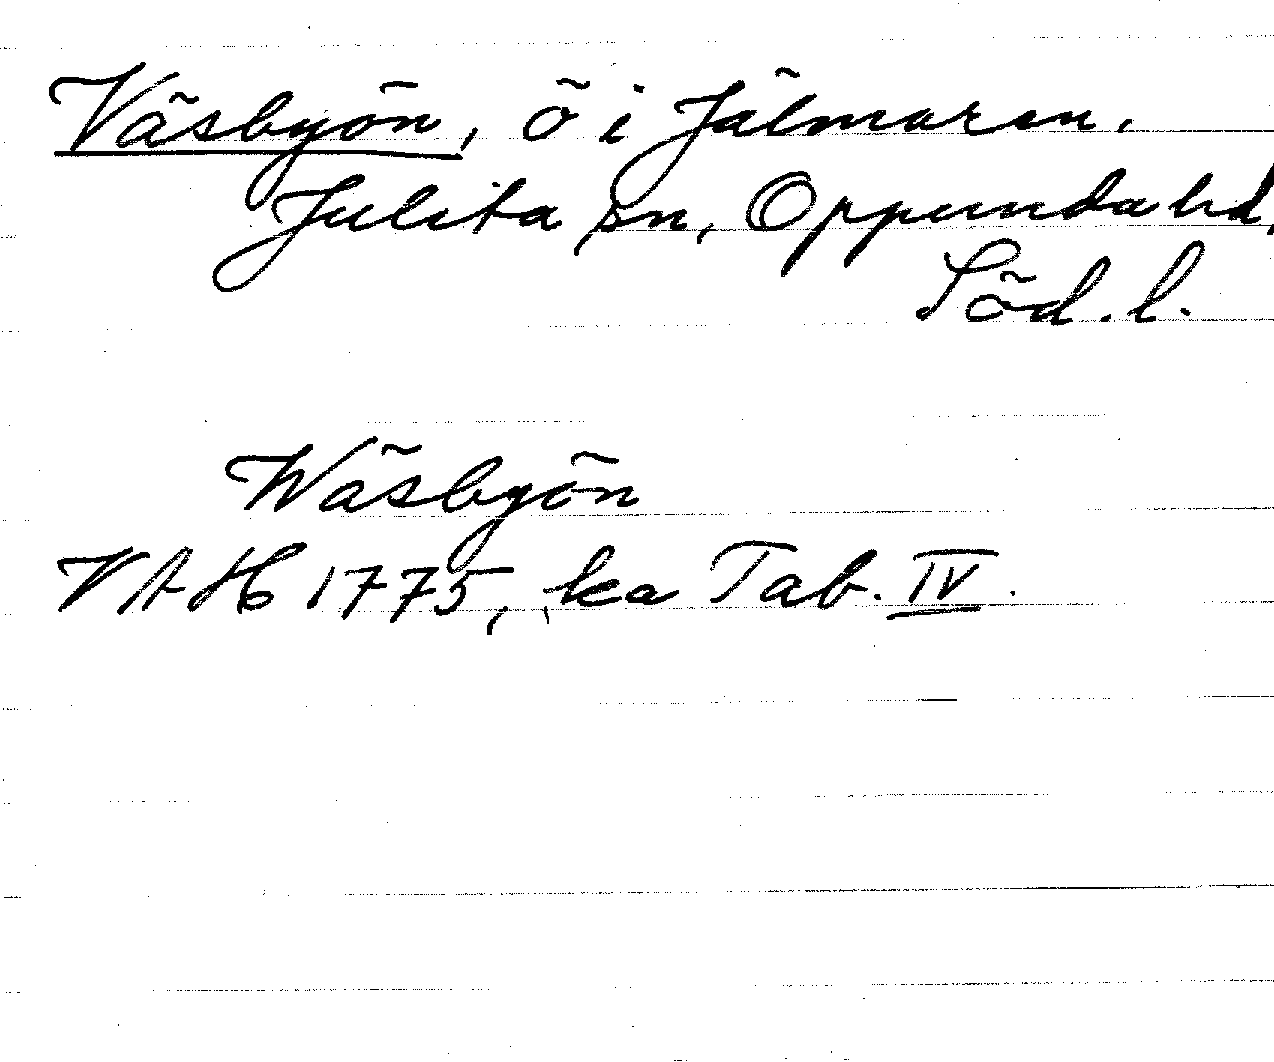 Väsbyön, ö i Jälmaren.
Julita sn, Oppunda hd,
Söd. l.
Wäsbyön
VAH 1775, ka Tab. IV.